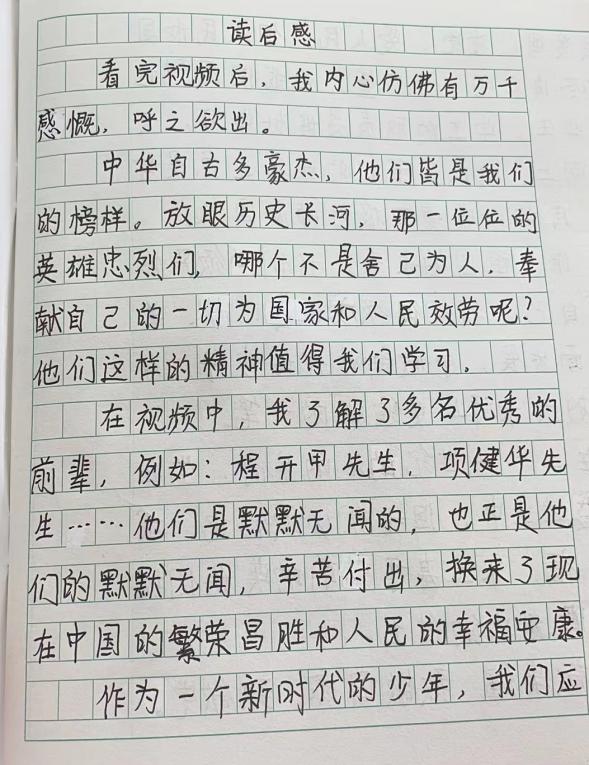 读后感
看完视频后，我内心仿佛有万千
感慨，呼之欲出。
中华自古多豪杰，他们皆是我们
的榜样。放眼历史长河，那一位位的
英雄忠烈们，哪个不是舍己为人，奉
献自己的一切为国家和人民效劳呢？
他们这样的精神值得我们学习。
在视频中，我了解了多名优秀的
前辈，例如：程开甲先生，项健华先
生……他们是默默无闻的，也正是他
们的默默无闻，辛苦付出，换来了现
在中国的繁荣昌胜和人民的幸福安康。
作为一个新时代的少年，我们应